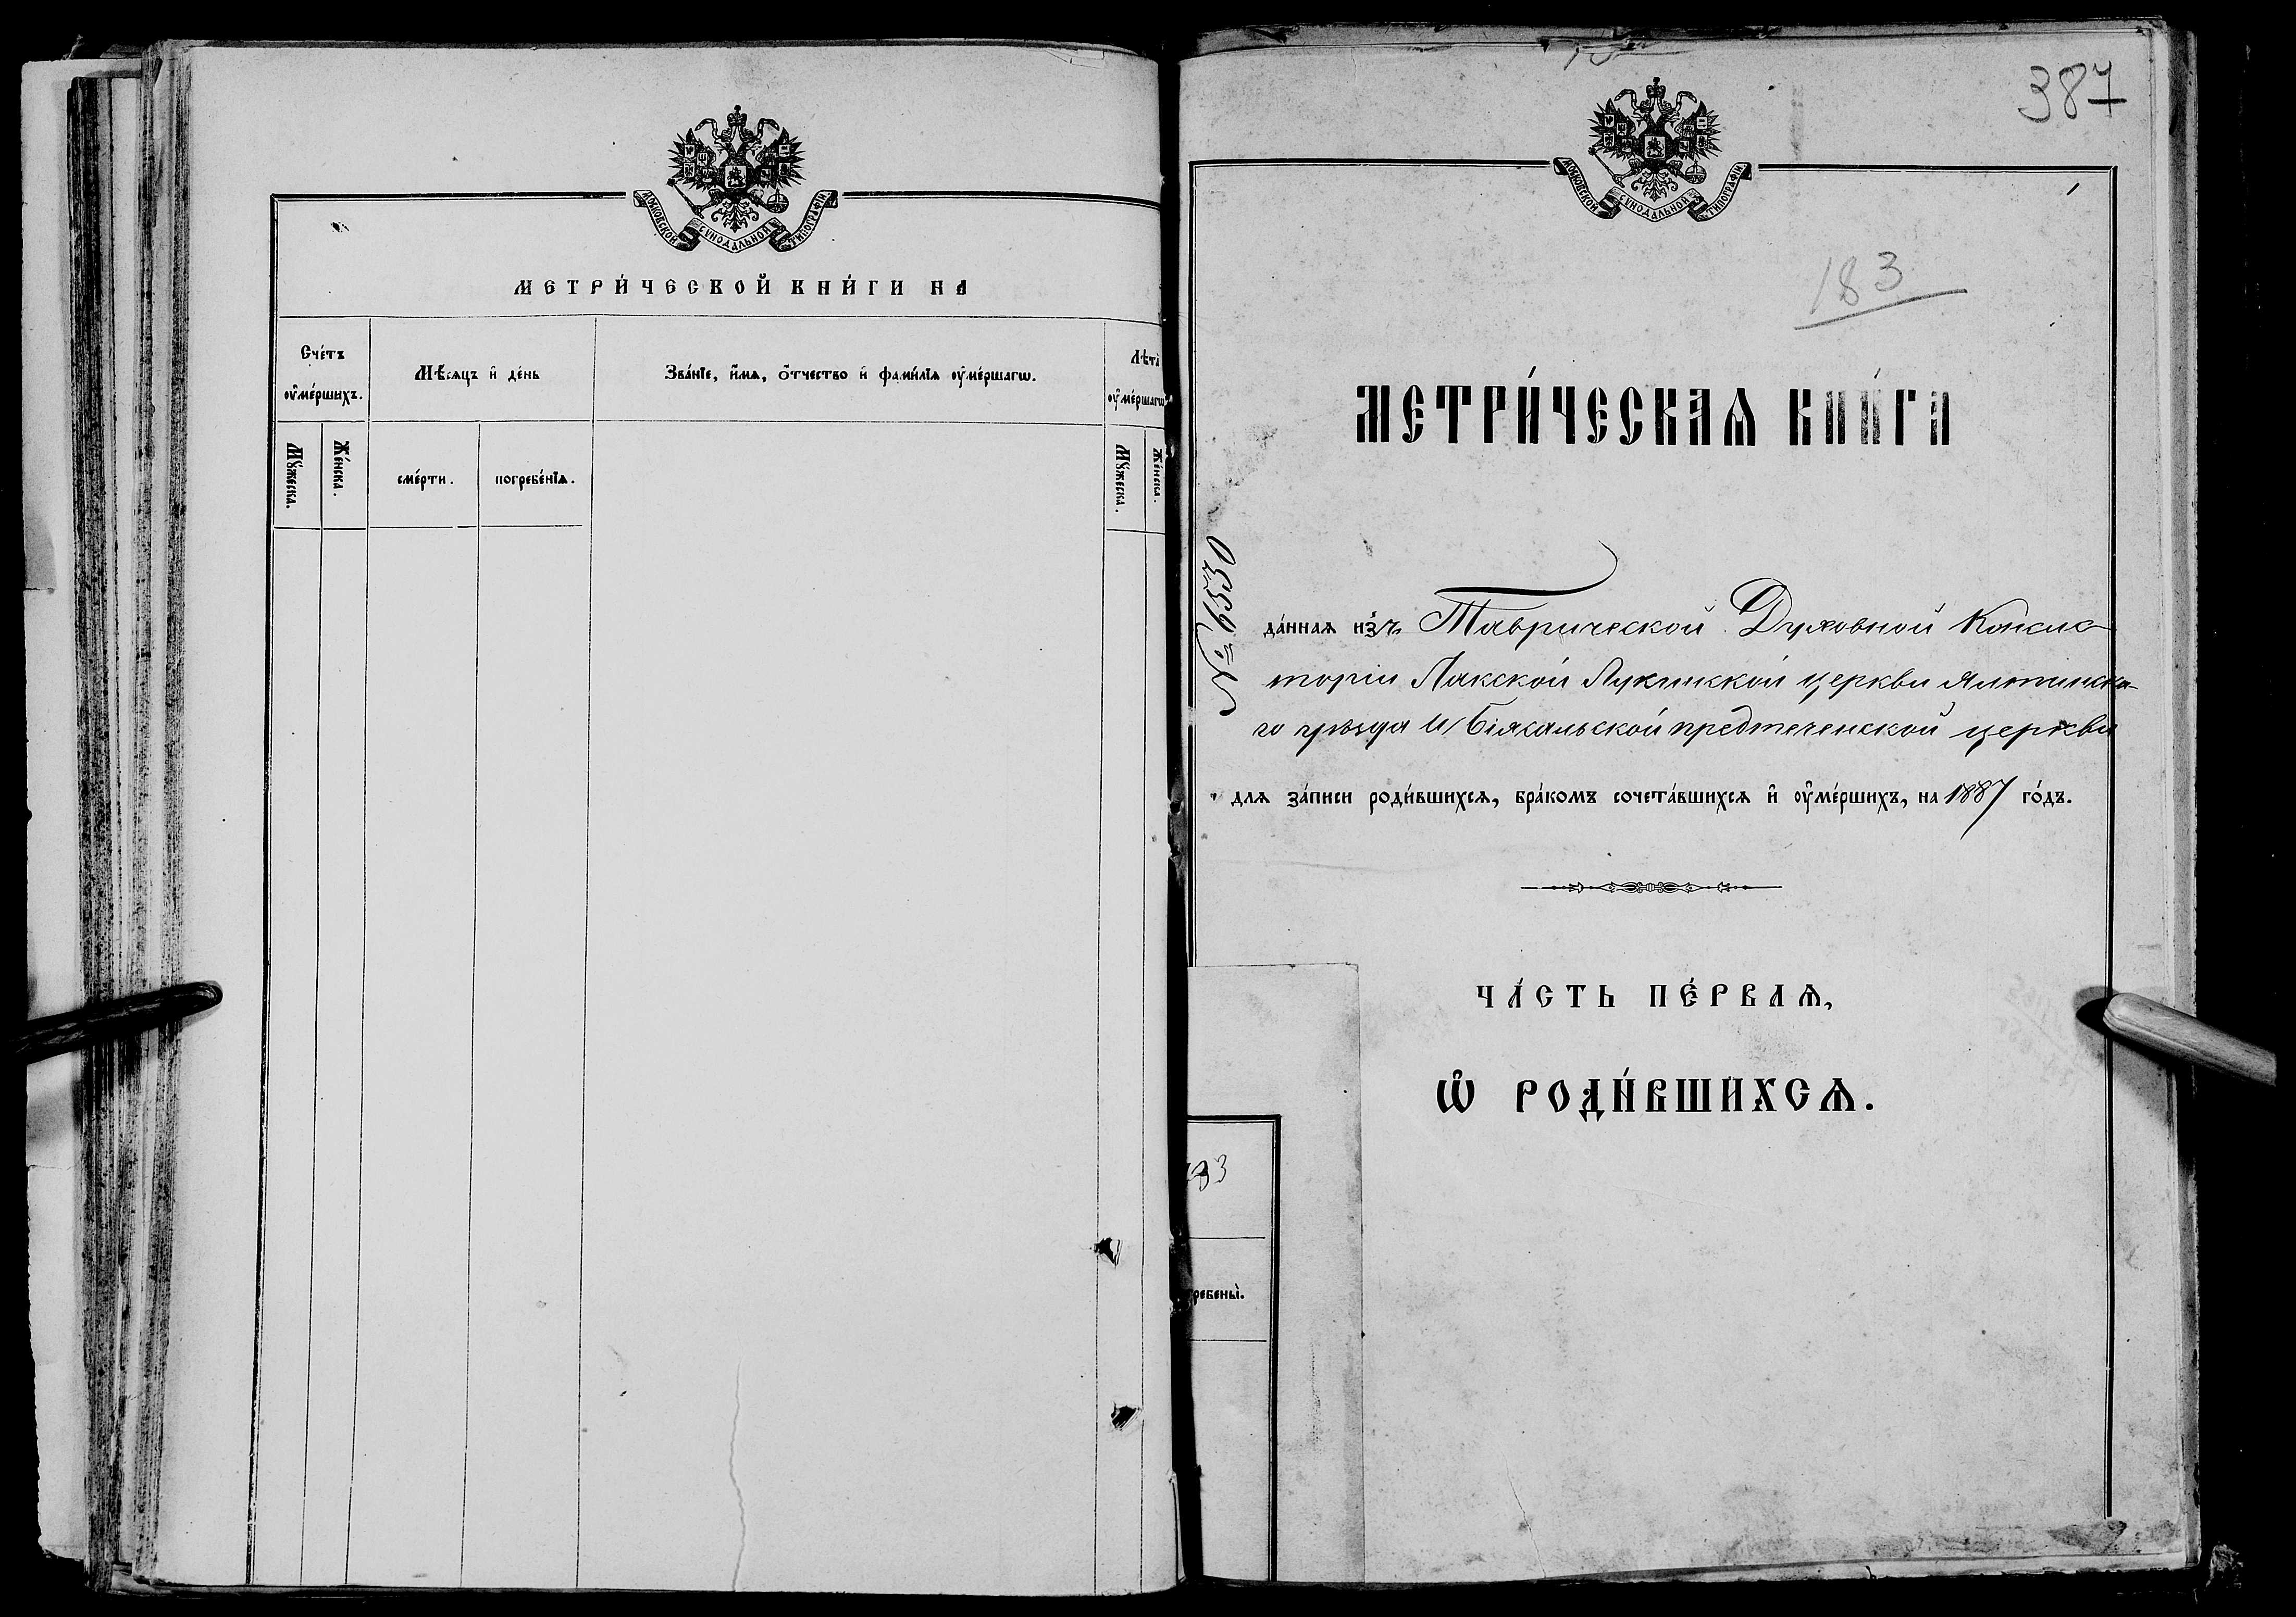 МОСКОВСКОЙ СѴНОДАЛЬНОЙ ТИПОГРАФІИ.
МЕТРИ́ЧЕСКОЙ КНИ́ГИ НА
Сче́тъ ᲂу҆ме́ршихъ.
Мѣ́сяцъ и҆ де́нь
Зва́нїе, и҆́мѧ, ѻ҆́тчество и҆ фами́лїѧ ᲂу҆ме́ршагѡ.
Лѣта̀ ᲂу҆ме́ршагѡ
Мꙋ́жеска.
Же́нска.
сме́рти.
погребе́нїѧ.
Мꙋ́жеска.
Же́нска.
387
МОСКОВСКОЙ СѴНОДАЛЬНОЙ ТИПОГРАФІИ.
183
МЕТРИ́ЧЕСКАѦ КНИ́ГА
№ 6530
да́ннаѧ из̾ъ Таврической Духовной Консис
торіи Лакской Лукинской церкви Ялтинска-
го уѣзда и Біясальской предтеченской церкви
длѧ за́писи роди́вшихсѧ, бра́комъ сочета́вшихсѧ и҆ ᲂу҆ме́ршихъ, на 1887 го́дъ.
ЧА́СТЬ ПЕ́РВАѦ,
Ѡ҆ РОДИ́ВШИХСѦ.
183
ребены̀.